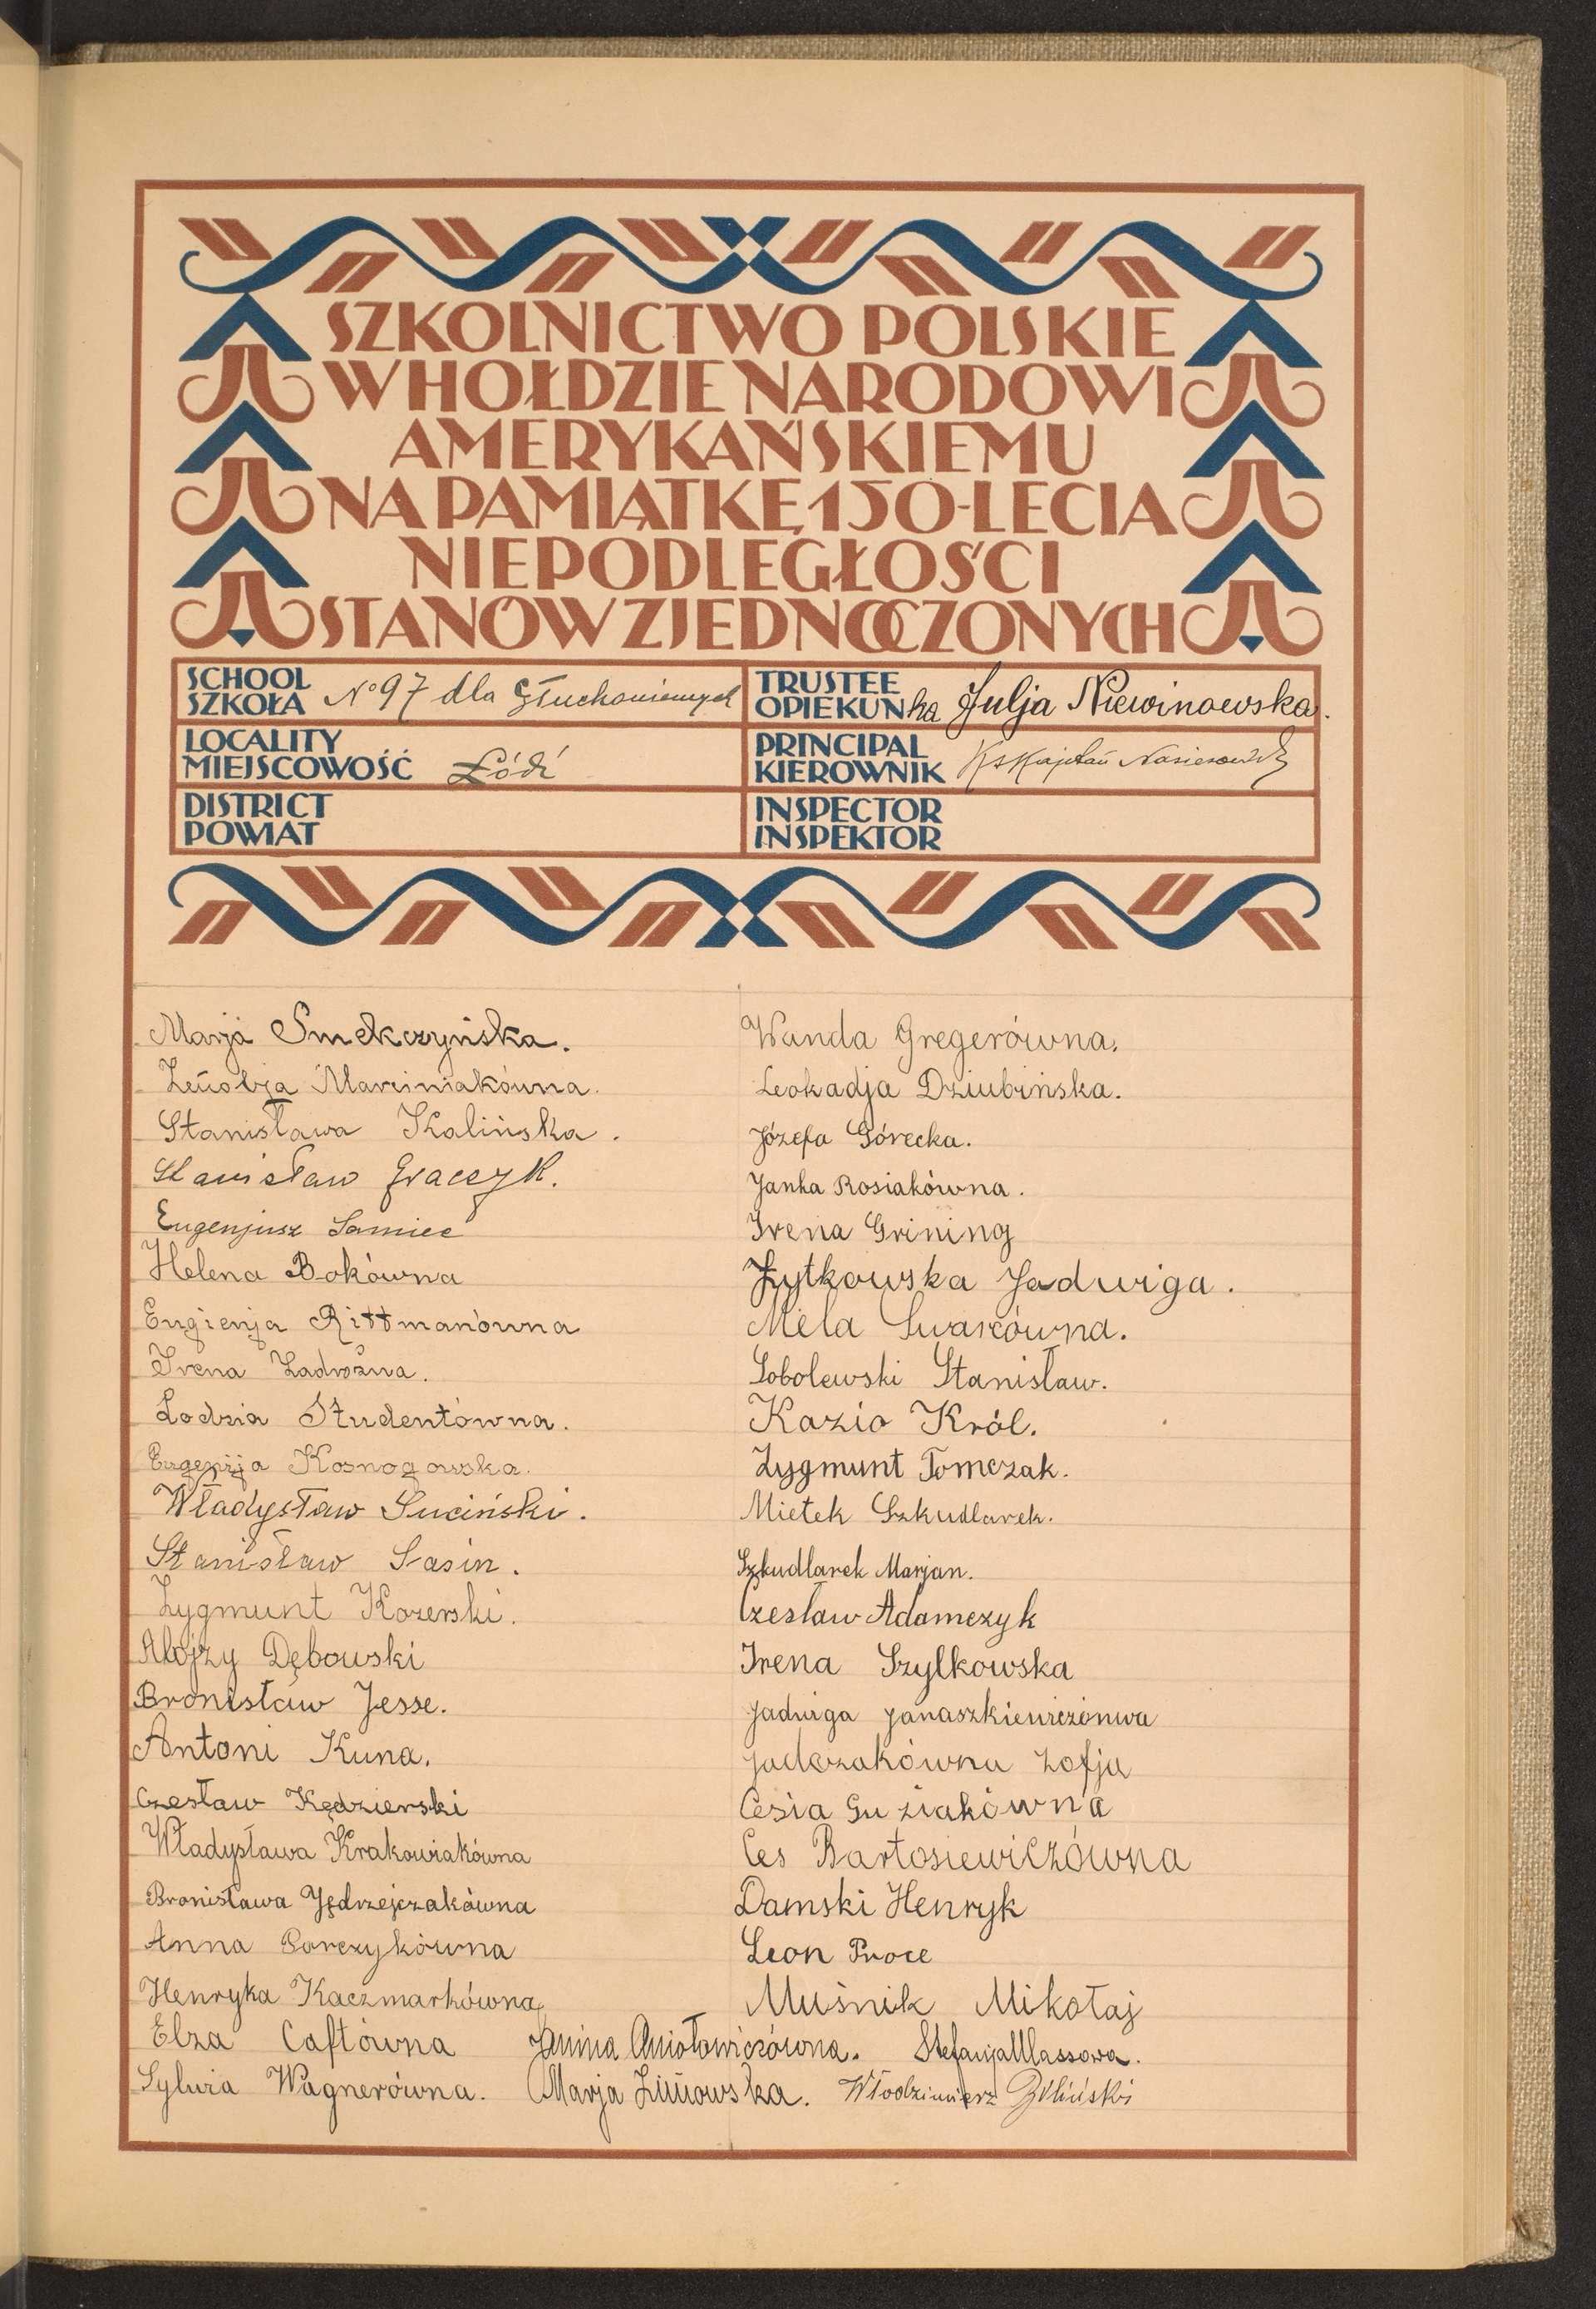 SZKOLNICTWO POLSKIE
W HOŁDZIE NARODOWI
AMERYKAŃSKIEMU
NA PAMIĄTKĘ 150-LECIA
NIEPODLEGŁOŚCI
STANÓW ZJEDNOCZONYCH
SCHOOL
SZKOŁA No 97 dla Głuchoniemych
TRUSTEE
OPIEKUNka Julja Niewinowska.
LOCALITY
MIEJSCOWOŚĆ Łódź
PRINCIPAL
KIEROWNIK Ks Kajetan
DISTRICT
POWIAT
INSPECTOR
INSPEKTOR
Marja Smekczyńska.
Zenobja Marciniakówna.
Stanisława Kalińska.
Stanisław Graczyk.
Eugenjusz Samiec
Helena Bokówna
Eugienja Rittmanówna
Irena Zadrożna.
Lodzia Studentówna.
Eugenja Kosnogowska.
Władysław Suciński.
Stanisław Sasin.
Zygmunt Kozerski.
Alojzy Dębowski
Bronisław Jesse.
Antoni Kuna.
Czesław Kędzierski
Władysława Krakowiakówna
Bronisława Jędrzejczakówna
Anna Parczykówna
Henryka Kaczmarkówna
Elza Caftówna
Sylwia Wagnerówna.
Wanda Gregerówna.
Leokadja Dziubińska.
Józefa Górecka.
Janka Rosiakówna.
Irena Grining
Żytkowska Jadwiga.
Mela
Sobolewski Stanisław.
Kazio Król.
Zygmunt Tomczak.
Mietek Szkudlarek.
Szkudlarek Marjan.
Czesław Adamczyk
Irena Szylkowska
Jadwiga Janaszkiewiczónwa
Jadczakówna Zofja
Cesia Guziakówna
Ces Bartosiewiczówna
Damski Henryk
Leon Proce
Muśnik Mikołaj
Janina Aniołowiczówna. Stefanja Massowa.
Marja Zimowska. Włodzimierz